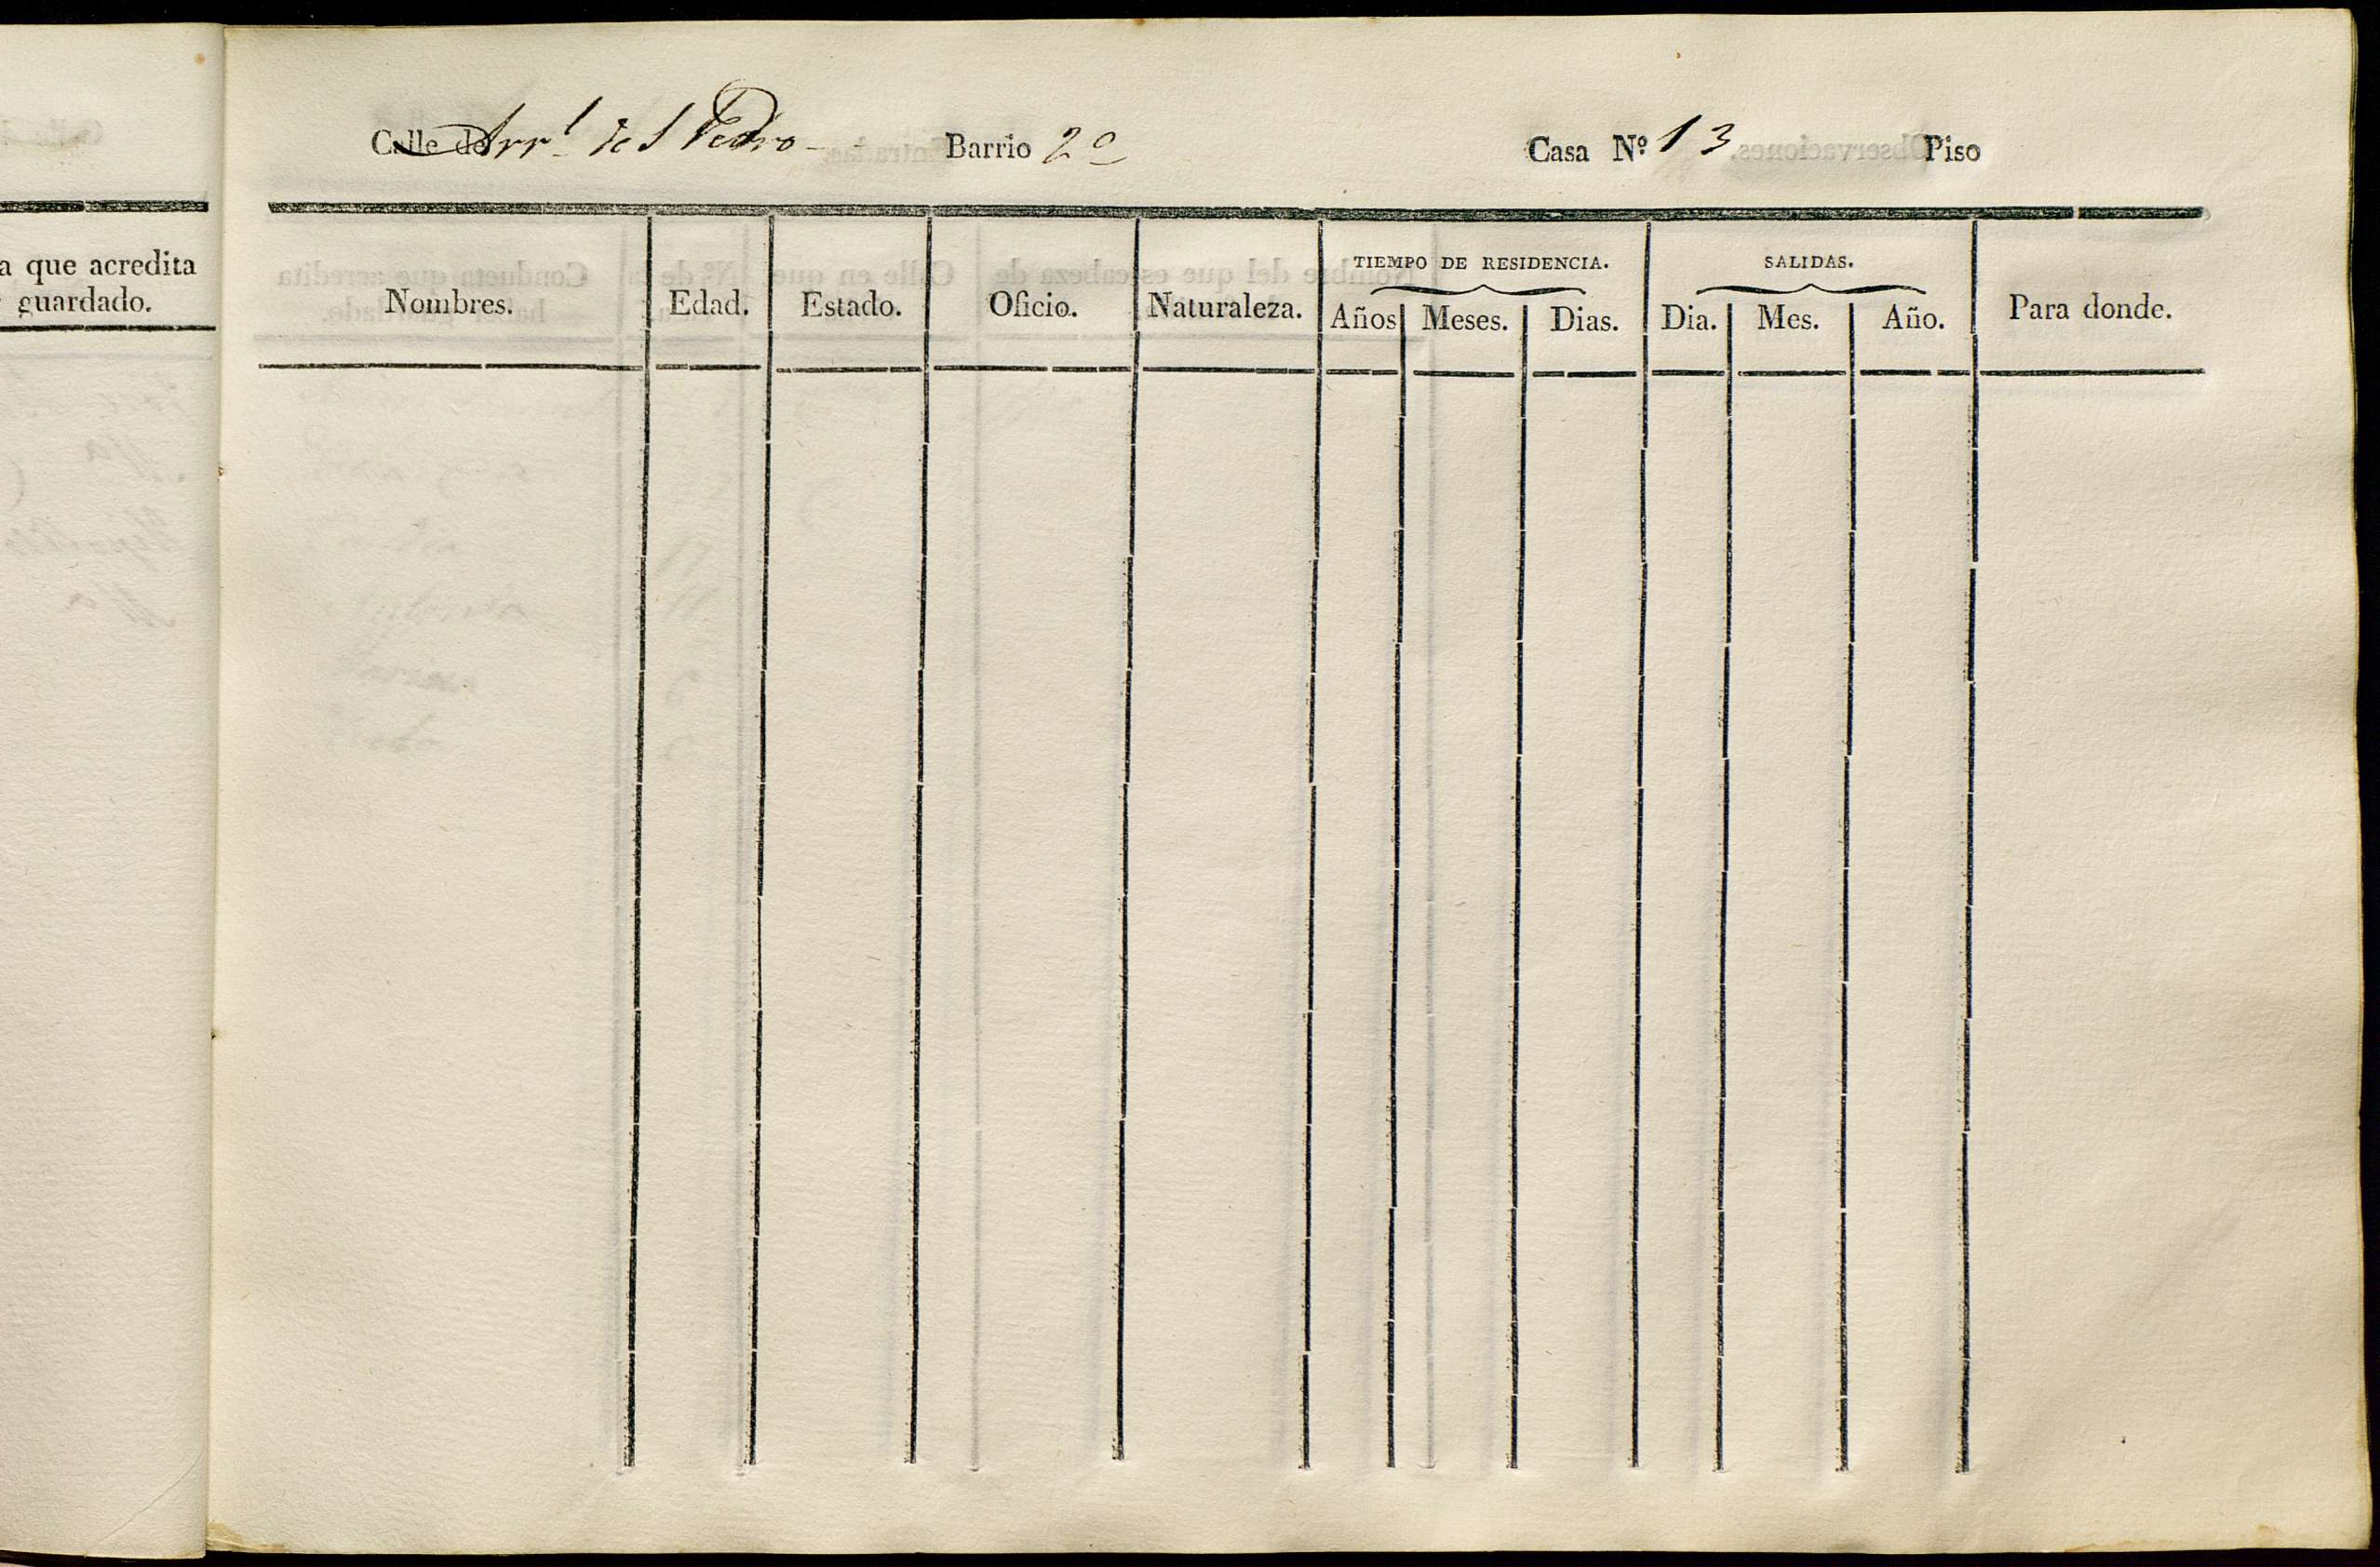 Calle de Arrl de S Pedro Barrio 2º Casa Nº 13 Piso
a que acredita
guardado.
TIEMPO DE RESIDENCIA. SALIDAS.
Nombres. Edad. Estado. Oficio. Naturaleza. Años Meses. Dias. Dia. Mes. Año. Para donde.